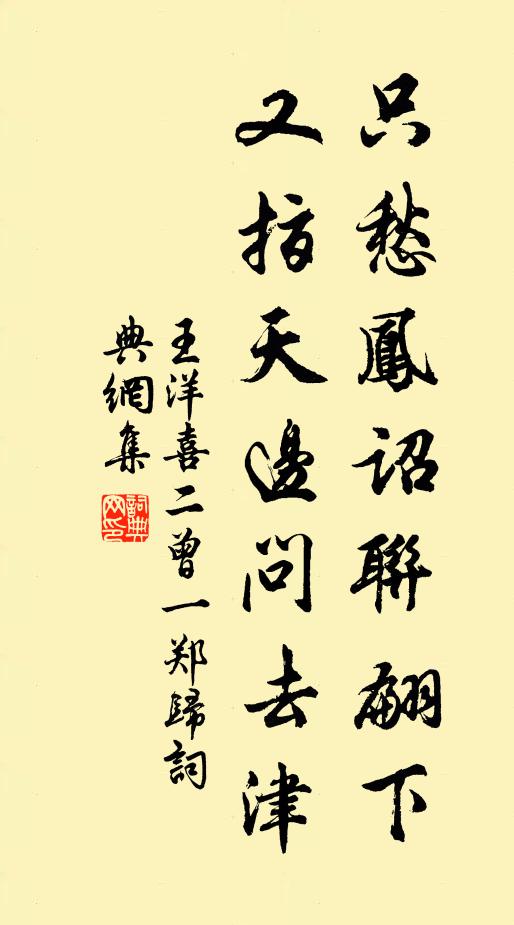 只愁鳳詔聯翩下
又指天邊問去津
王洋喜二曾一郑歸詞
典網集
詞典
网印